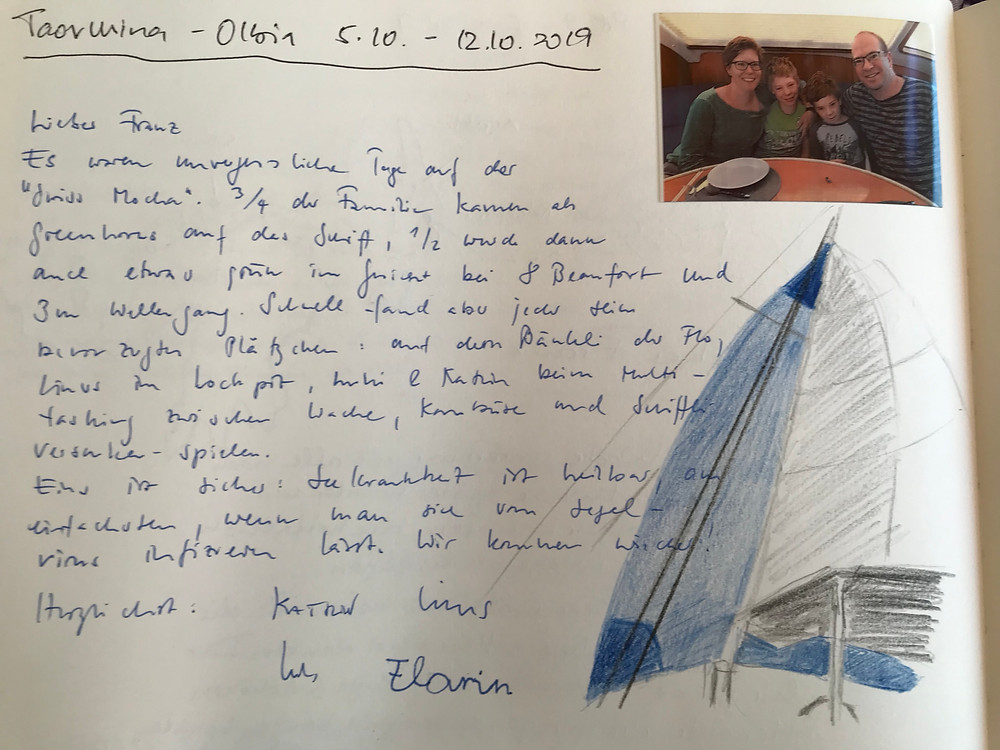 Taormina - Olbia 5.10. - 12.10.2019
Lieber Franz
Es waren unvergessliche Tage auf der
"Swiss Mocha". 3/4 der Familie kamen als
Greenhorns auf das Schiff, 1/2 wurde dann
auch etwas grün im Gesicht bei 8 Beaufort und
3m Wellengang. Schnell fand aber jeder sein
bevorzugtes Plätzchen: auf dem Bänkli der Flo,
Linus im Cockpit, & Katrin beim Multi-
tasking zwischen Wache, Kombüse und Schiffli
versenken-spielen.
Eins ist sicher: Seekrankheit ist heilbar, am
einfachsten, wenn man sich vom Segel-
virus infizieren lässt. Wir kommen wieder.
Herzlichst: Katrin Linus
Florin